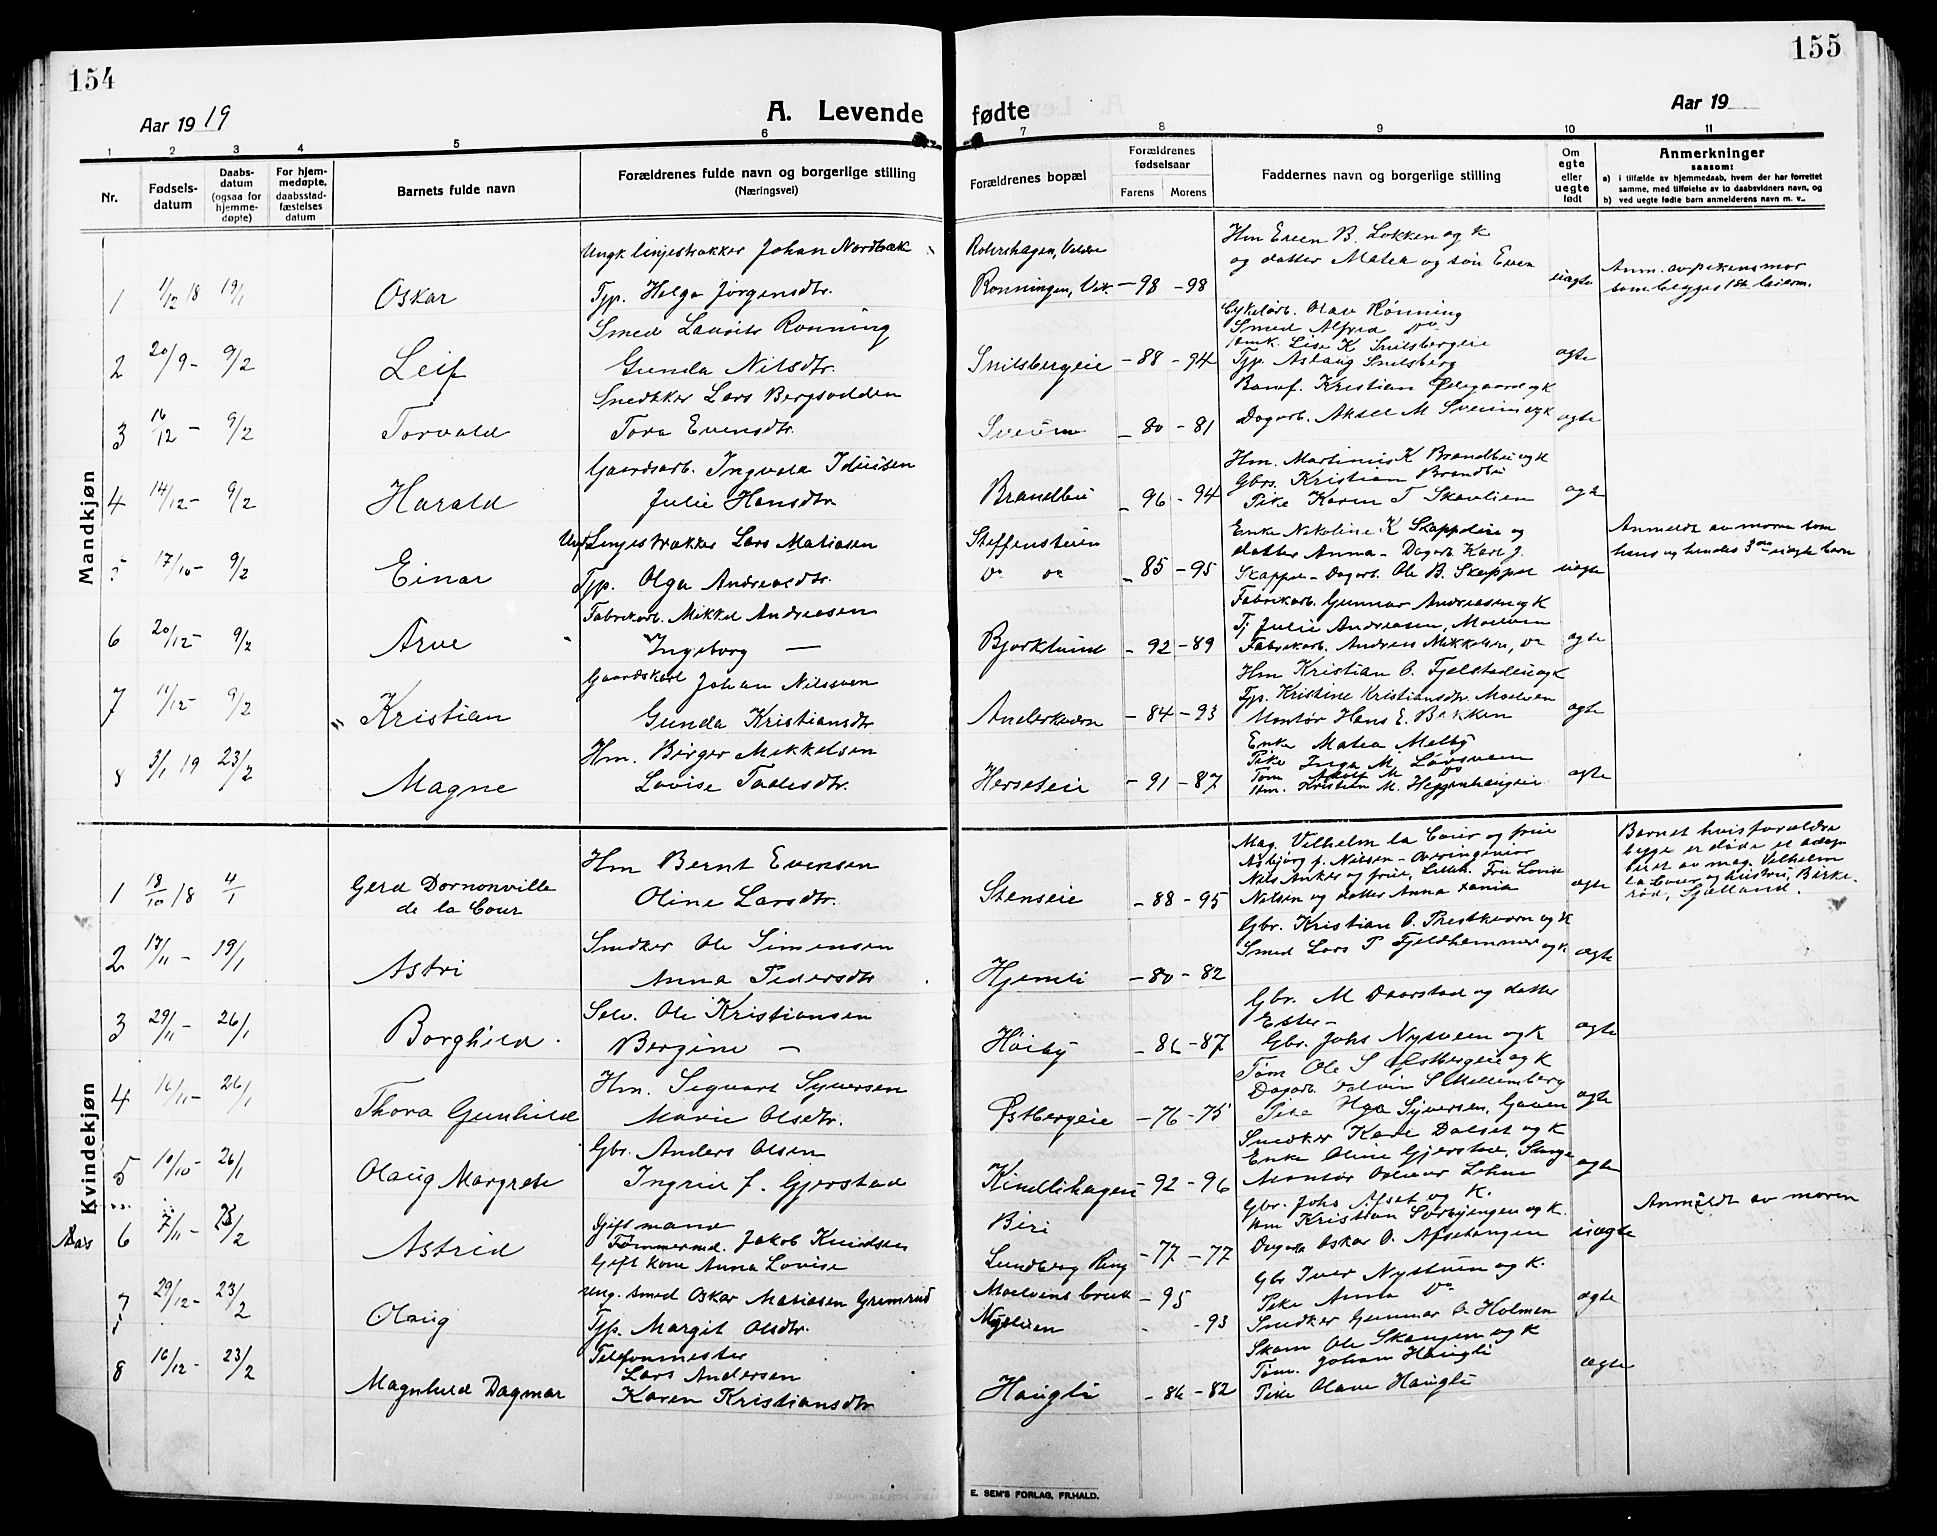 154
155
Aar 1919
A. Levende fødte
Aar 19
1 2 3 4 5 6 7 8 9 10 11
Nr.
Fødsels-
datum
Daabs-
datum
(ogsaa for
hjemme-
døpte)
For hjem-
medøpte,
daabsstad-
fæstelses
datum
Barnets fulde navn
Forældrenes fulde navn og borgerlige stilling
(Næringsvei)
Forældrenes bopæl
Forældrenes
fødselsaar
Farens Morens
Faddernes navn og borgerlige stilling
Om
egte
eller
uegte
født
Anmerkninger
saasom:
a) i tilfælde av hjemmedaab, hvem der har forrettet
samme, med tilføielse av to daabsvidners navn, og
b) ved uegte fødte barn anmelderens navn m. v..
Mandkjøn
1 1/12 18 19/1 Oskar
Ungk. linjestrækker Johan Nordbak
Tjp. Helga Jørgensdtr.
Rønningen, -98 -98
Hm Even B. Løkken og k
og datter Matea og søn Even
uægte
Anm. av pikens mor
2 20/9 - 9/2 Leif
Smed Laurits Rønning
Gunda Nilsdtr.
Snilsbergeie -88 -94
Cykelarb. Olav Rønning
Smed Alfred Do
Lise K Snilsbergeie
Tjp. Aslaug Snilsberg
ægte
3 16/12 - 9/2 Torvald
Snedkker Lars Bergsodden
Tora Evensdtr.
Sveum -80 -81
Kristian Ødegaard og k
Dagarb. Aksel M Sveum og k
ægte
4 14/12 - 9/2 Harald
Gaardsarb. Ingvald Iduisen
Julie Hansdtr.
Brandbu -96 -94
Hm. Martinus K Brandbu og k
Gbrs. Kristian Brandbu
Pike Karen T Skavlien
ægte
5 17/10 - 9/2 Einar
Linjestrækker Lars Matiasen
Tjp. Olga Andreasdtr.
Steffenseien
Do Do -85 -95
Enke Nikoline K Skappeleie og
datter Anna - Dagarb Karl J.
Skappel - Dagarb. Ole B. Skappel
uægte
Anmeldt av moren som
hans og hendes 3die uægte barn
6 20/12 - 9/2 Arve
Fabrikarb. Mikkel Andreasen
Ingeborg —
Bjørklund -92 -89
Fabrikarb. Gunnar Andreasen og k
Tj Julie Andreasen, Moelven
Fabrikarb. Andreas Mikkelsen, Do
ægte
7 11/12 - 9/2 Kristian
Gaardskarl Johan Nilssven
Gunda Kristiansdtr
Anderkværn -84 -93
Hm Kristian O. Fjelstadeie og k
Tjp. Kristine Kristiansdtr. Moelven
Montør Hans E. Bakken
ægte
8 3/1 19 23/2 Magne
Hm. Birger Mikkelsen
Lovise Tadesdtr.
Herseteie -91 -87
Enke Matea Melby
Pike Inga M. Løvsveen
Tøm Adolf M Do
Hm. Kristian M. Heggenhaugeie
ægte
Kvindekjøn
1 18/10 18 4/1 Gerd Dornonville
de la Cour
Hm Bernt Evensen
Oline Larsdtr.
Stenseie -88 -95
Mag. Vilhelm la Cour og frue
Asbjørg f. Nielsen - Overingeniør
Nils Anker og frue, Lilleh. Fru Lovise
Nielsen og datter Anna Xania
ægte
Barnet hvis forældre
begge er døde er adop-
tert av mag. Vilhelm
la Cour og hustru, Birke-
rød, Sjælland.
2 17/11 - 19/1 Astri
Snedker Ole Simensen
Anna Pedersdtr
Hjemli -80 -82
Gbr. Kristian O. Prestkværn og k
Smed Lars P Fjeldhammer og k
ægte
3 29/11 - 26/1 Borghild
Selv. Ole Kristiansen
Bergine —
Høiby -86 -87
Gbr. M Daarstad og datter
Ester -
Gbr. Johs Nysveen og k
ægte
4 16/11 - 26/1 Thora Gunhild
Hm. Sigvart Syversen
Marie Olsdtr.
Østbergeie -76 -75
Tøm Ole S Østbergeie og k
Dagarb. S Mellemberg
Pike Syversen, Gaven
ægte
5 10/10 - 26/1 Olaug Margrete
Gbr. Anders Olsen
Ingrid f. Gjerstad
Kindlihagen -92 -96
Snedker Kaare Dalset og k
Enke Oline Gjerstad, Stange
Montør Lehne
ægte
Aas 6 7/11 - /2 Astrid
Gift mand
Tømmermd. Jakob Knudsen
Gift kone Anna Lovise
Biri
Lundberg Ring -77 -77
Gbr. Johs Afset og K.
Hm Kristian Sorbyengen og k.
Dagarb Oskar O. Afsetengen
uægte
Anmeldt av moren
7 29/12 - 23/2 Olaug
Ung. smed Oskar Matiasen Grimsrud
Tjp. Margit Olsdtr.
Moelvens bruk -95
Nyseien -93
Gbr Iver Nystuen og k.
Pike Anna Do
Snedker Gunnar O. Holmen
ægte
8 16/12 - 23/2 Magnhild Dagmar
Telefonmester
Lars Andersen
Karen Kristiansdtr
Haugli -86 -82
Skom Ole Skaugen og k
Tøm. Johan Haugli
Pike Olave Haugli
ægte
E. SEM'S FORLAG, FR.HALD.